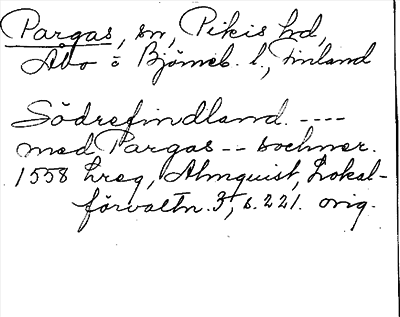 Pargas, sn, Pikis hd,
Åbo o Björneb. l., Finland
Södrefindland ----
med Pargas -- sochner.
1558 hreg, Almquist, Lokal-
förvaltn. 3, s. 221. orig.